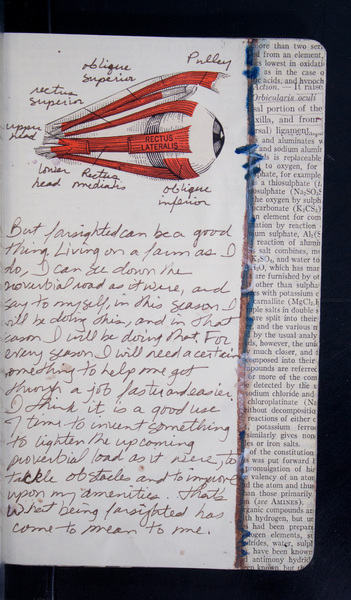 oblique
superior
Pulley
rectus
superior
upper
head
RECTUS
LATERALIS
lower
head
Rectus
medialis
oblique
inferior
But farsighted can be a good
thing. Living on a farm as I
do, I can see down the
proverbial road as it were, and
say to myself, in this season I
will be doing this, and in that
season I will be doing that. For
every season I will need a certain
something to help me get
through a job faster and easier.
I think it is a good use
of time to invent something
to lighten the upcoming
proverbial load as it were, to
tackle obstacles and to improve
upon my amenities. That's
what being farsighted has
come to mean to me.
more than two ser
ed from an element,
es lowest in oxidati
as in the case o
ic acids, and hypoch
Action. — It raise
Orbicularis oculi
sal portion of the
xilla, and from
rsal) ligament
and aluminates w
and sodium alumi
ds is replaceable
to oxygen, for
phate, for example
a thiosulphate
the oxygen by sulph
ocarbonate (K₂CS₃)
n element for com
tation by reaction
um sulphate, Al₂(S
reaction of alumin
salt combines, m
and water to
which has mar
are furnished by ot
other than sulpha
es with potassium c
arnallite (MgCl₂,
ple salts in double s
are split into their
and the various r
by the usual analy
ds, however, the uni
much closer, and t
omposed into their
mpounds are referred
or more of the con
detected by the u
sodium chloride and
chloroplatinate (Na
without decomposition
reactions of either
potassium ferroc
similarly gives non
es or iron salts.
of the constitution
was put forward l
romulgation of his
valency of an aton
the atom and thus
an those primarily
(see AMINES).
organic compounds an
th hydrogen, but or
had been prepare
ogen elements, s
drides, water, sulph
have been known
antimony hydric
en known but the